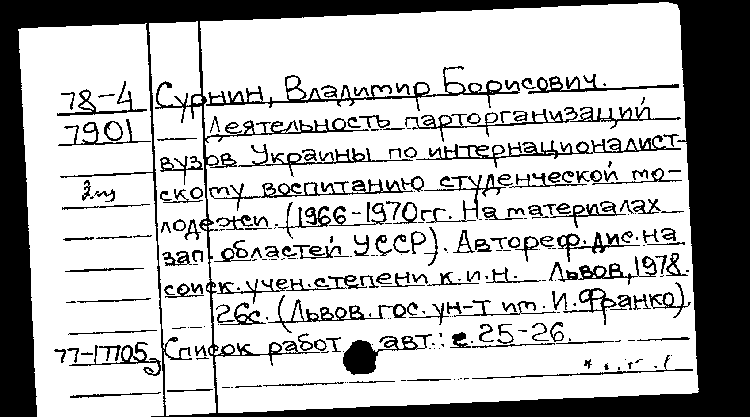 78-4 Сурнин, Владимир Борисович.
7901 Деятельность парторганизаций
вузов Украины по интернационалист-
2 скому воспитанию студенческой мо-
лодежи. (1966-1970гг. На материалах
зап. областей УССР). Автореф. дис. на
соиск. учен. степени к.и.н. Львов, 1978.
26с. (Львов. гос. ун-т им. И. Франко).
77-17705 Список работ авт.: с. 25-26.